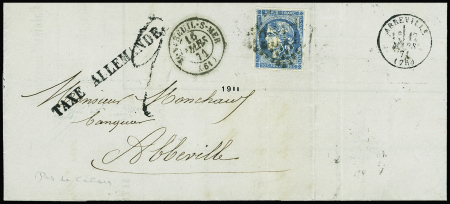 MONTREUIL-S-MER
16
MARS
71
(61)
ABBEVILLE
17
MARS
71
(76)
TAXE ALLEMANDE
2
1911
Monsieur Monchaux
banquier
Abbeville